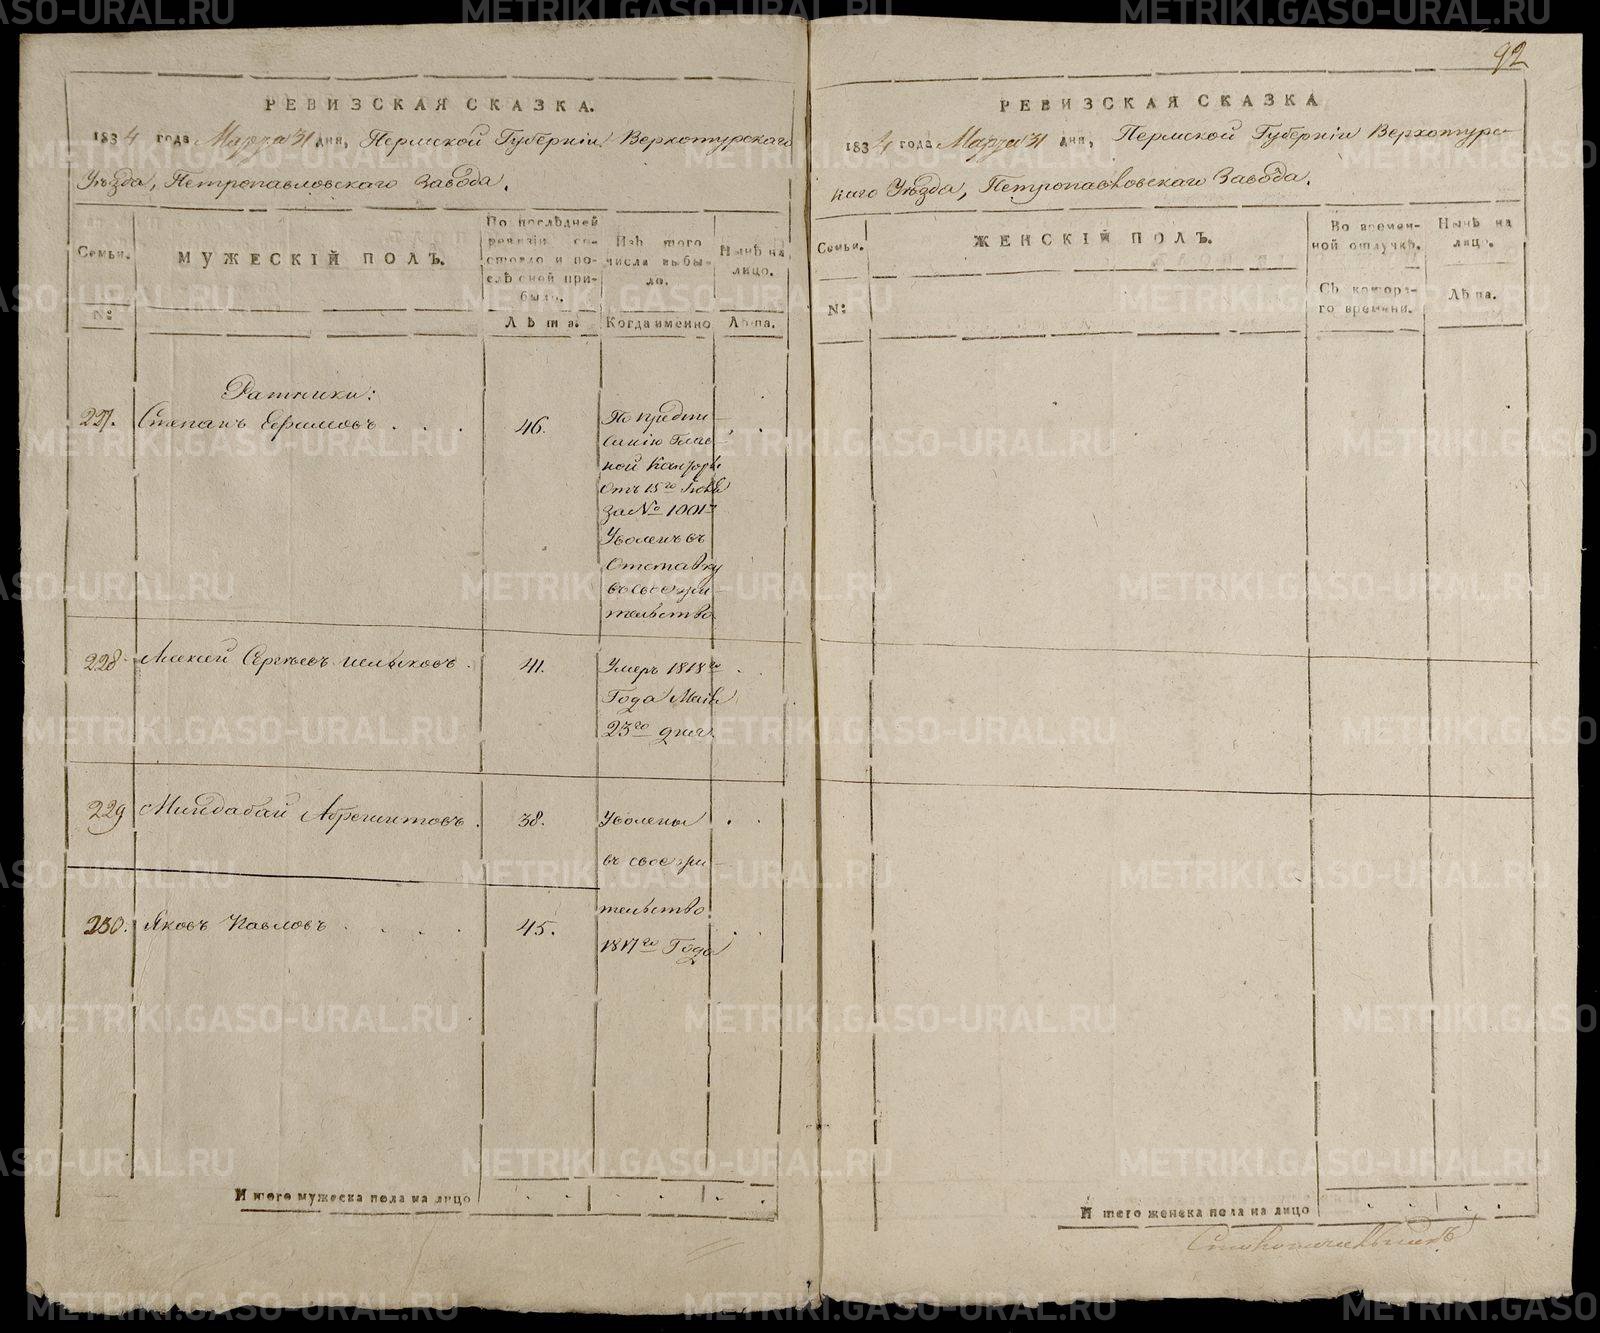 92
РЕВИЗСКАЯ СКАЗКА.
1834 года Марта 31 дня, Пермской Губерніи Верхотурскаго
Уѣзда, Петропавловскаго Завода.
Семьи.
МУЖЕСКІЙ ПОЛЪ.
По послѣдней
ревизіи со-
стояло и по-
слѣ оной при-
было.
Изъ того
числа выбы-
ло.
Нынѣ на
лицо.
№:
Лѣта.
Когда именно
Лѣта.
Ратники:
227. Степанъ Ефимовъ . . . 46.
По предпи-
санію Глав-
ной Конторы
Отъ 15го
За № 1001м
Уволенъ въ
Отставку
въ свое жи-
тельство.
228. Алексей Сергѣевъ . 41.
Умеръ 1818го
Года Маія
23го дня.
229 Миндабай . 38.
Уволены
въ свое жи-
тельство
1817го Года
230. Яковъ Павловъ . . . . 45.
И того мужеска пола на лицо
РЕВИЗСКАЯ СКАЗКА
1834 года Марта 31 дня, Пермской Губерніи Верхотурс-
каго Уѣзда, Петропавловскаго Завода.
Семьи.
ЖЕНСКІЙ ПОЛЪ.
Во времен-
ной отлучкѣ.
Нынѣ на
лицо.
№:
Съ которо-
го времени.
Лѣта.
И того женска пола на лицо
METRIKI.GASO-URAL.RU